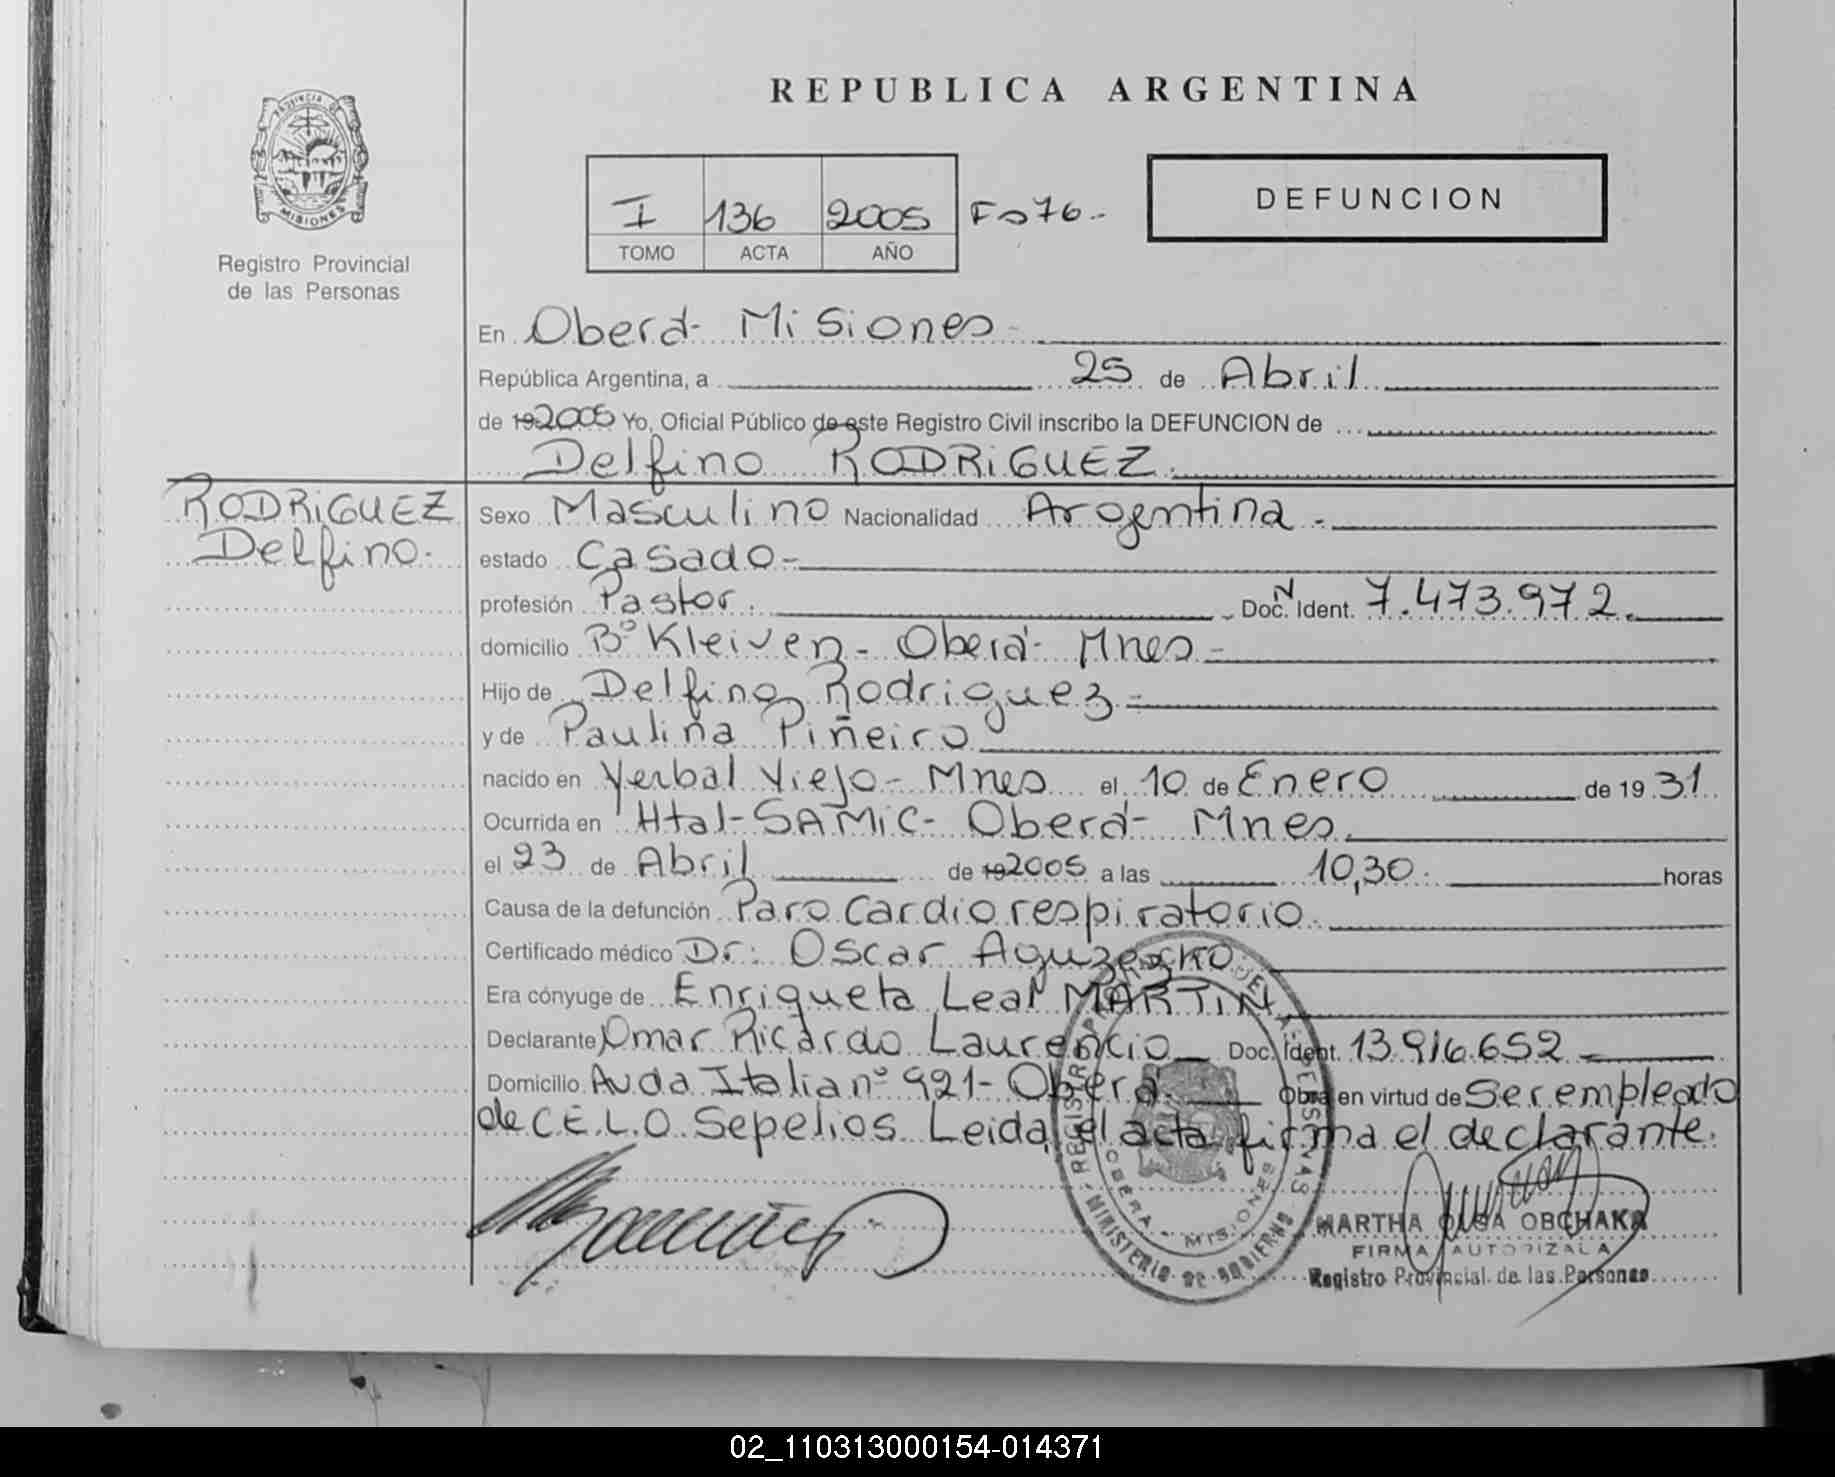 REPUBLICA ARGENTINA
PROVINCIA DE
MISIONES
Registro Provincial
de las Personas
I 136 2005 Fo76.-
TOMO ACTA AÑO
DEFUNCION
En Oberá- Misiones-
República Argentina, a 25 de Abril
de 19 2005 Yo, Oficial Público de este Registro Civil inscribo la DEFUNCION de
Delfino RODRIGUEZ.
RODRIGUEZ
Delfino.
Sexo Masculino Nacionalidad Argentina.-
estado Casado-
profesión Pastor. Doc. Ident. N 7.473.972.
domicilio Bº Kleiven- Oberá- Mnes-
Hijo de Delfino Rodriguez-
y de Paulina Piñeiro
nacido en Yerbal Viejo- Mnes el 10 de Enero de 19 31
Ocurrida en Htal- SAMiC- Oberá- Mnes.
el 23 de Abril de 19 2005 a las 10,30. horas
Causa de la defunción Paro Cardiorespiratorio.
Certificado médico Dr: Oscar
Era cónyuge de Enriqueta Leal MARTIN
Declarante Omar Ricardo Laurencio Doc. Ident. 13.916.652-
Domicilio Avda Italia nº 921- Oberá. Obra en virtud de Ser empleado
de C.E.L.O. Sepelios. Leida el acta firma el declarante.
OBERA - MISIONES
MINISTERIO DE GOBIERNO
MARTHA OLGA OBCHAKA
FIRMA AUTORIZADA
Registro Provincial de las Personas
02_110313000154-014371